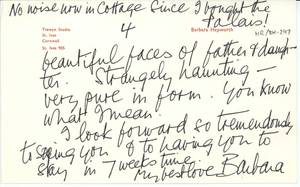 No noise now in Cottage Since I bought the
Palais!
4
Trewyn Studio
St. Ives
Cornwall
Barbara Hepworth
beautiful faces of father & daugh-
ter. Strangely haunting —
very pure in form. You know
what I mean.
I look forward so tremendously
to seeing you & to having you to
stay in 7 weeks time.
My best love Barbara